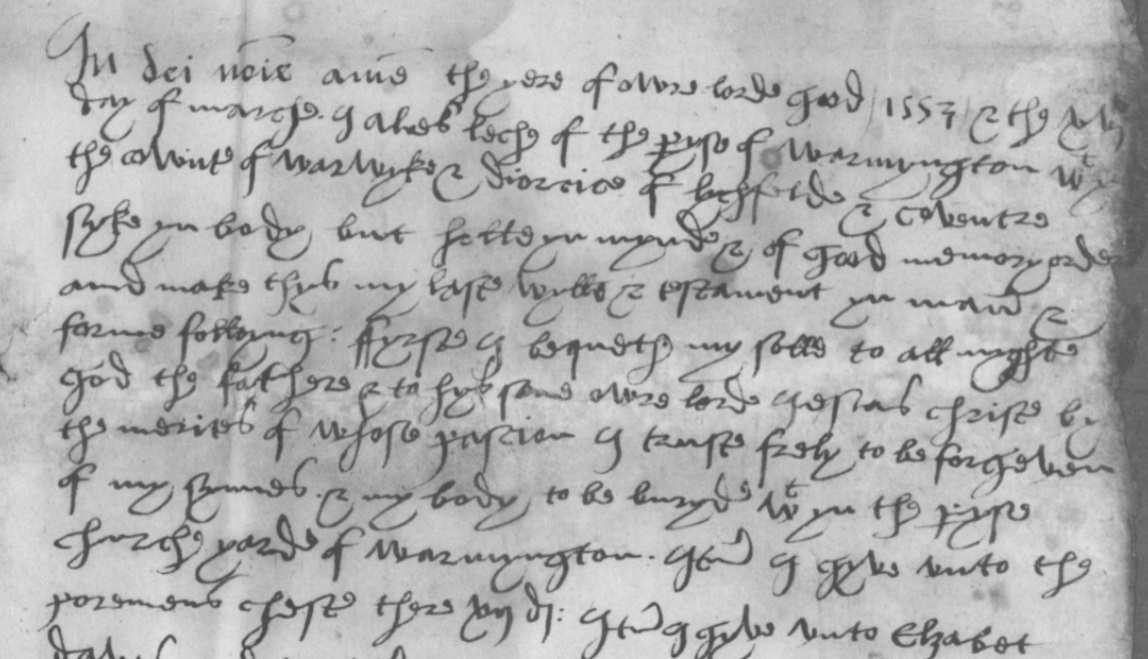 In dei noie ame the yere of owre lorde god / 1557 / & the xvij
day of marche. I ales leche of the pyse of warmyngton wt yn
the cownte of warwyke & diorcice of lychfelde & coventre
syke yn body but holle yn mynde & of good memory orde
and make thys my laste wylle & testament yn man &
forme folloyng: ffyrste I bequeth my solle to all myghte
god the fathere & to hys sone owre lorde Jessus christe by
the merites of whose passion I truste frely to be forgeven
of my synnes. & my body to be buryde wt yn the pyse
churche yarde of warmyngton. Itm I gyve unto the
poremens cheste there xij d: Itm I gyve unto Elzabet